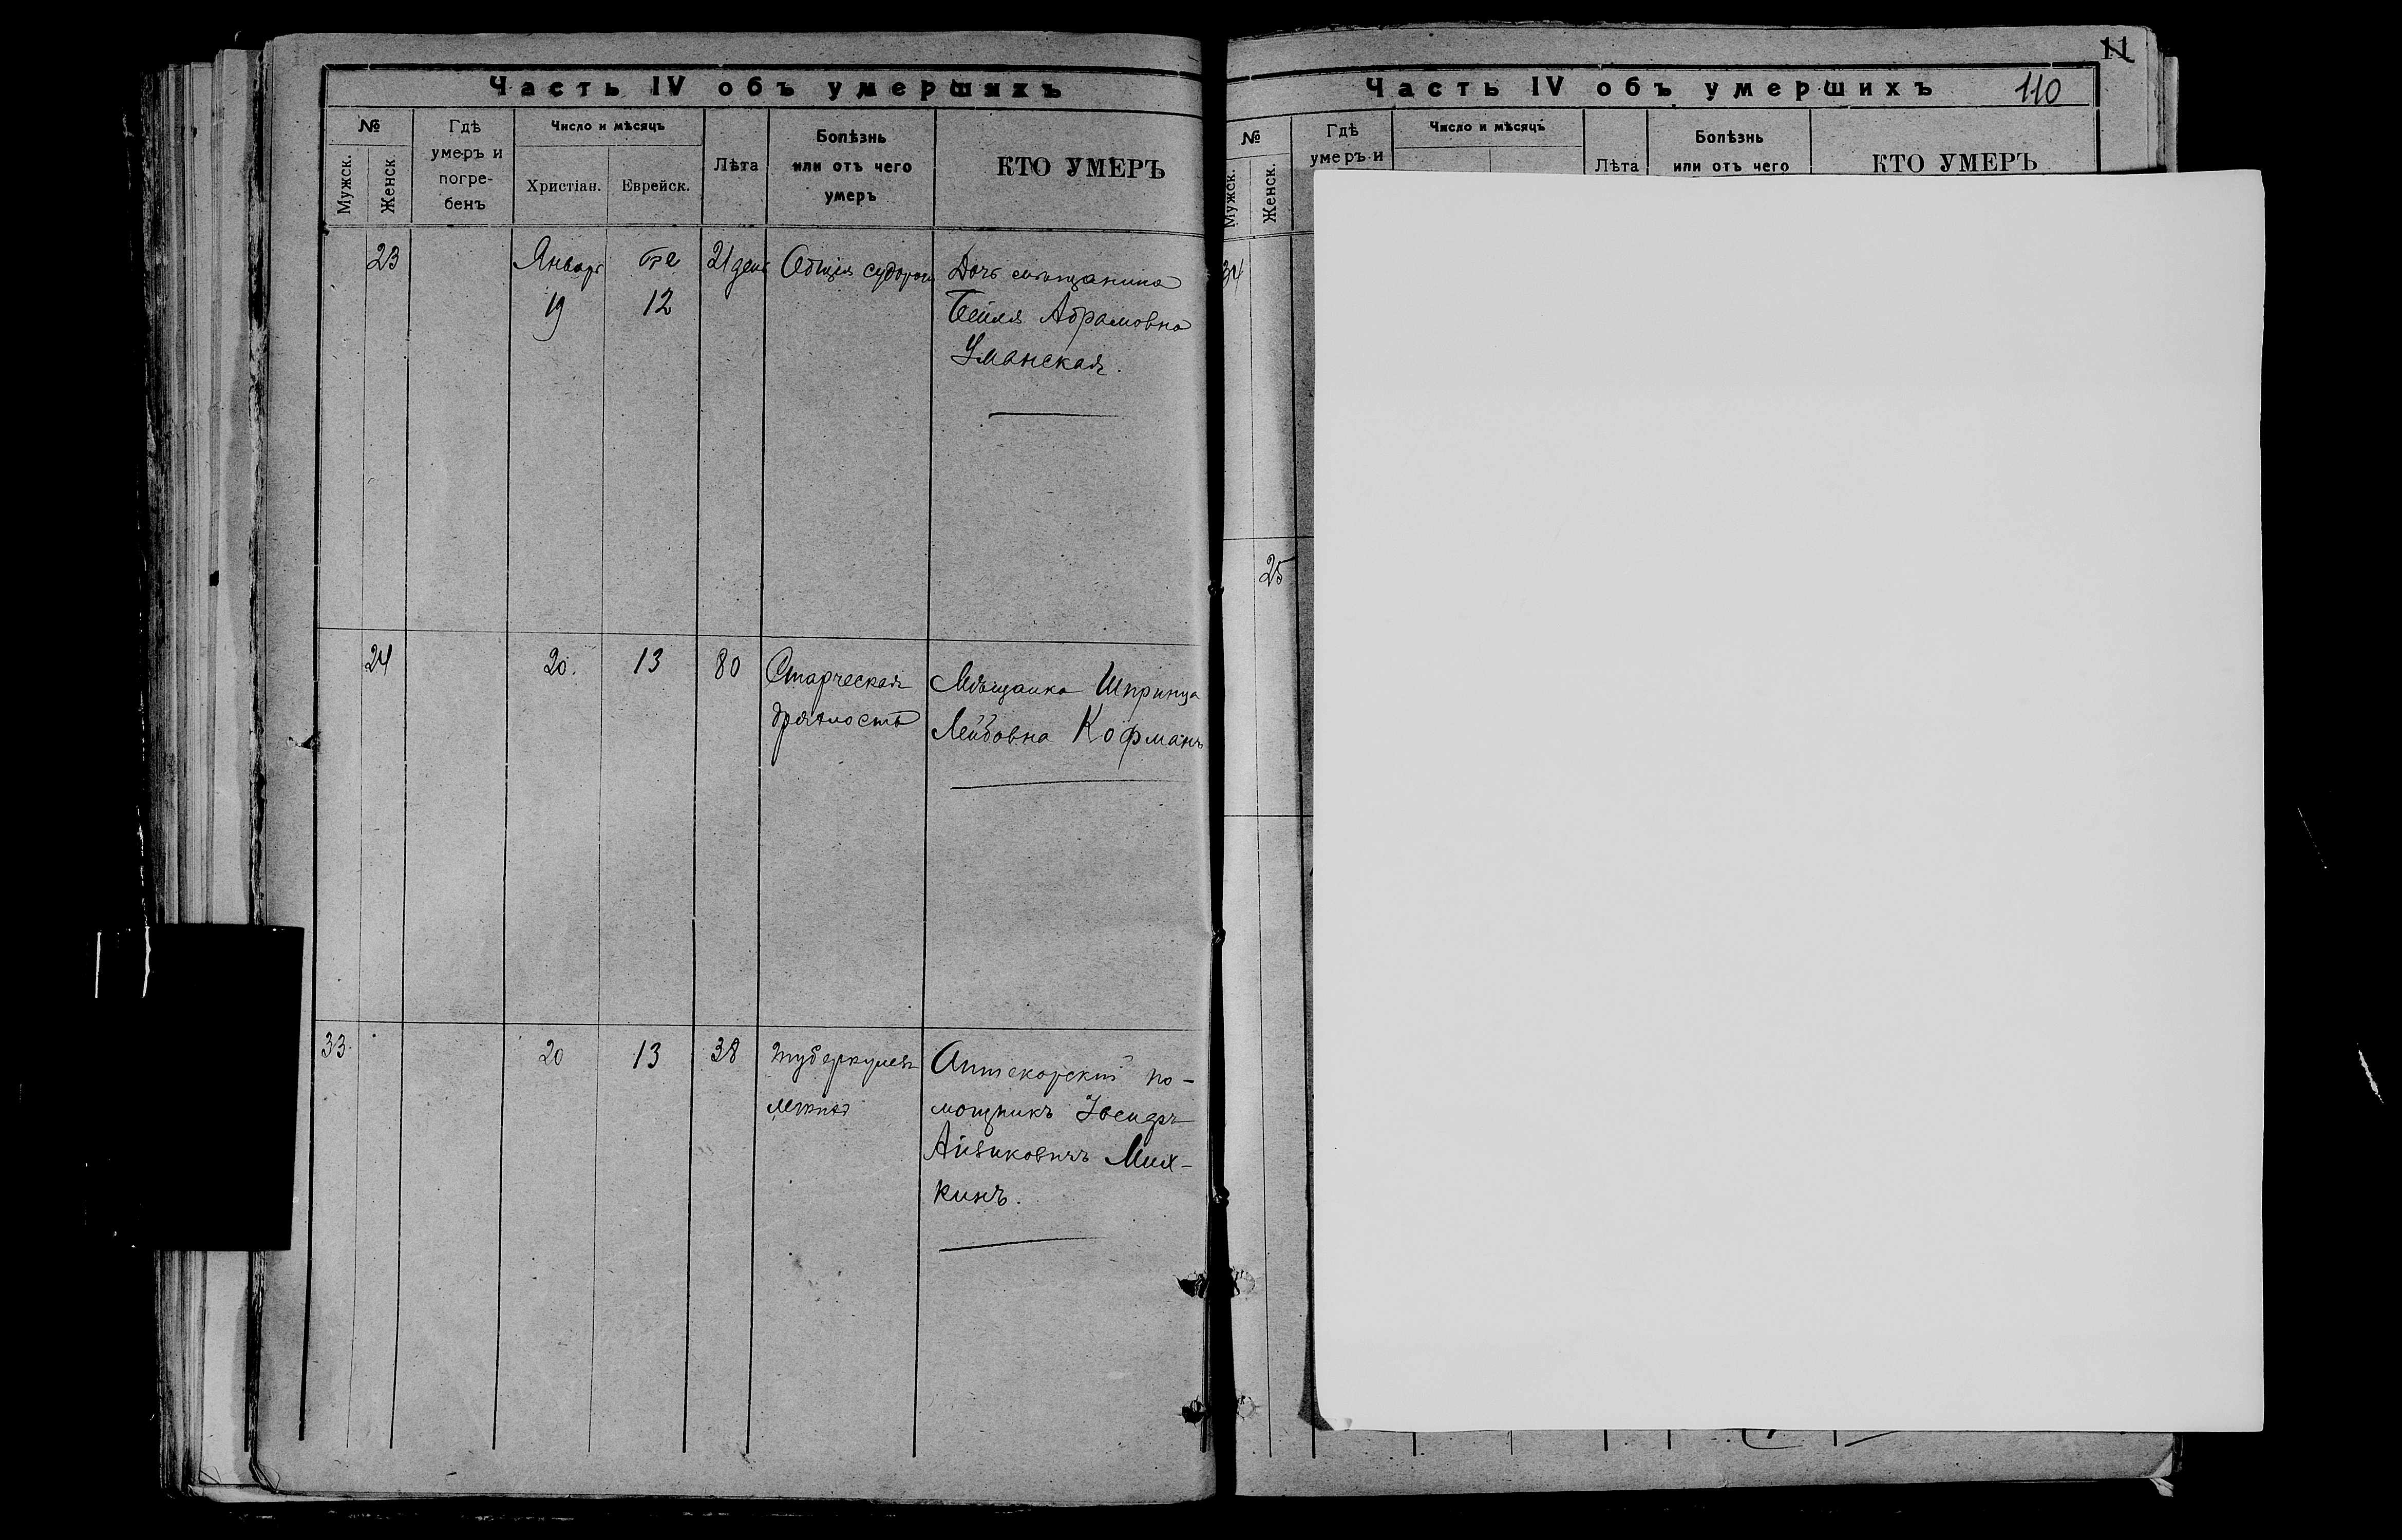 Часть IV объ умершихъ
№
Мужск.
Женск.
Гдѣ
умеръ и
погре-
бенъ
Число и мѣсяцъ
Христіан.
Еврейск.
Лѣта
Болѣзнь
или отъ чего
умеръ
КТО УМЕРЪ
23
Январ
19
12
21 день
Общія судороги
Дочь мѣщанина
Бейля Абрамовна
Уманская.
24
20.
13
80
Старческая
дряхлость
Мѣщанка Шпринца
Лейбовна Кофманъ
33
20
13
38
туберкулезъ
легкихъ
Аптекарскій по-
мощникъ Іосифъ
Айзиковичъ Мил-
кинъ.
11
Часть IV объ умершихъ
110
№
Мужск.
Женск.
Гдѣ
умеръ и
Число и мѣсяцъ
Лѣта
Болѣзнь
или отъ чего
КТО УМЕРЪ
34
25